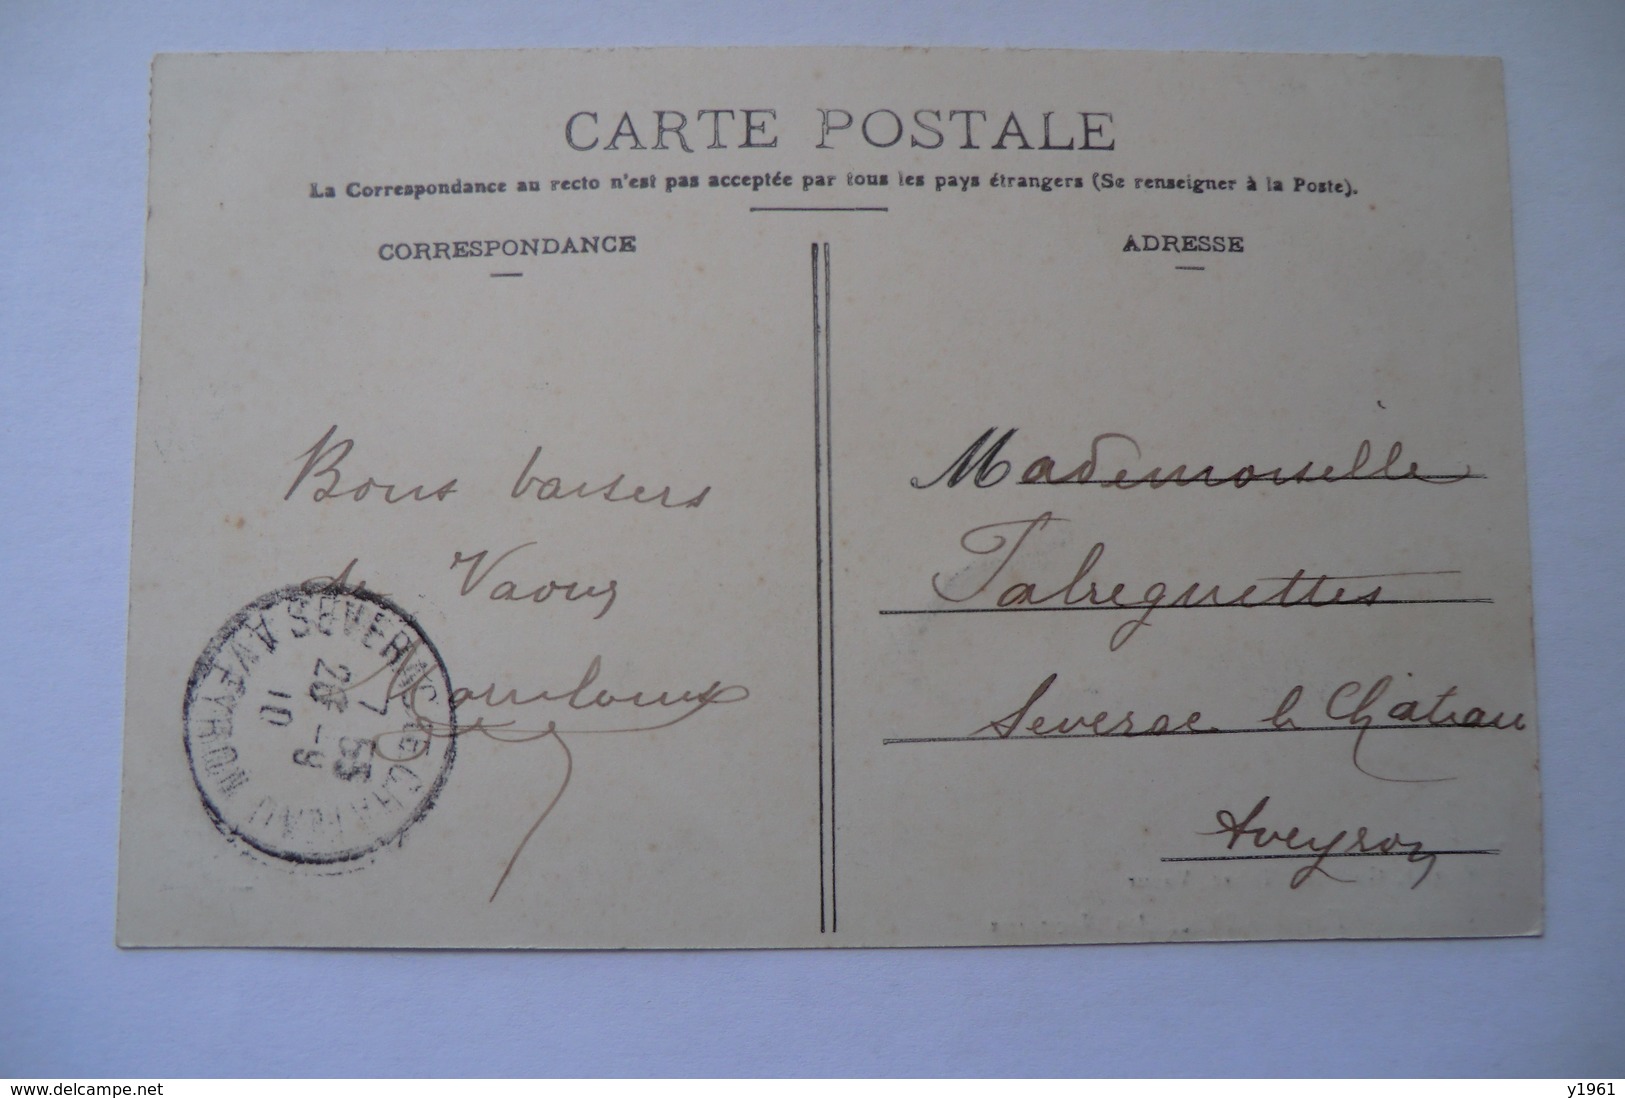 CARTE POSTALE
La Correspondance au recto n'est pas acceptée par tous les pays étrangers (Se renseigner à la Poste).
CORRESPONDANCE
ADRESSE
Bons baisers
de Vaour
Mademoiselle
Fabreguettes
Severac le Château
Aveyron
SEVERAC LE CHATEAU AVEYRON
7 55
26 - 9
10
www.delcampe.net
y1961